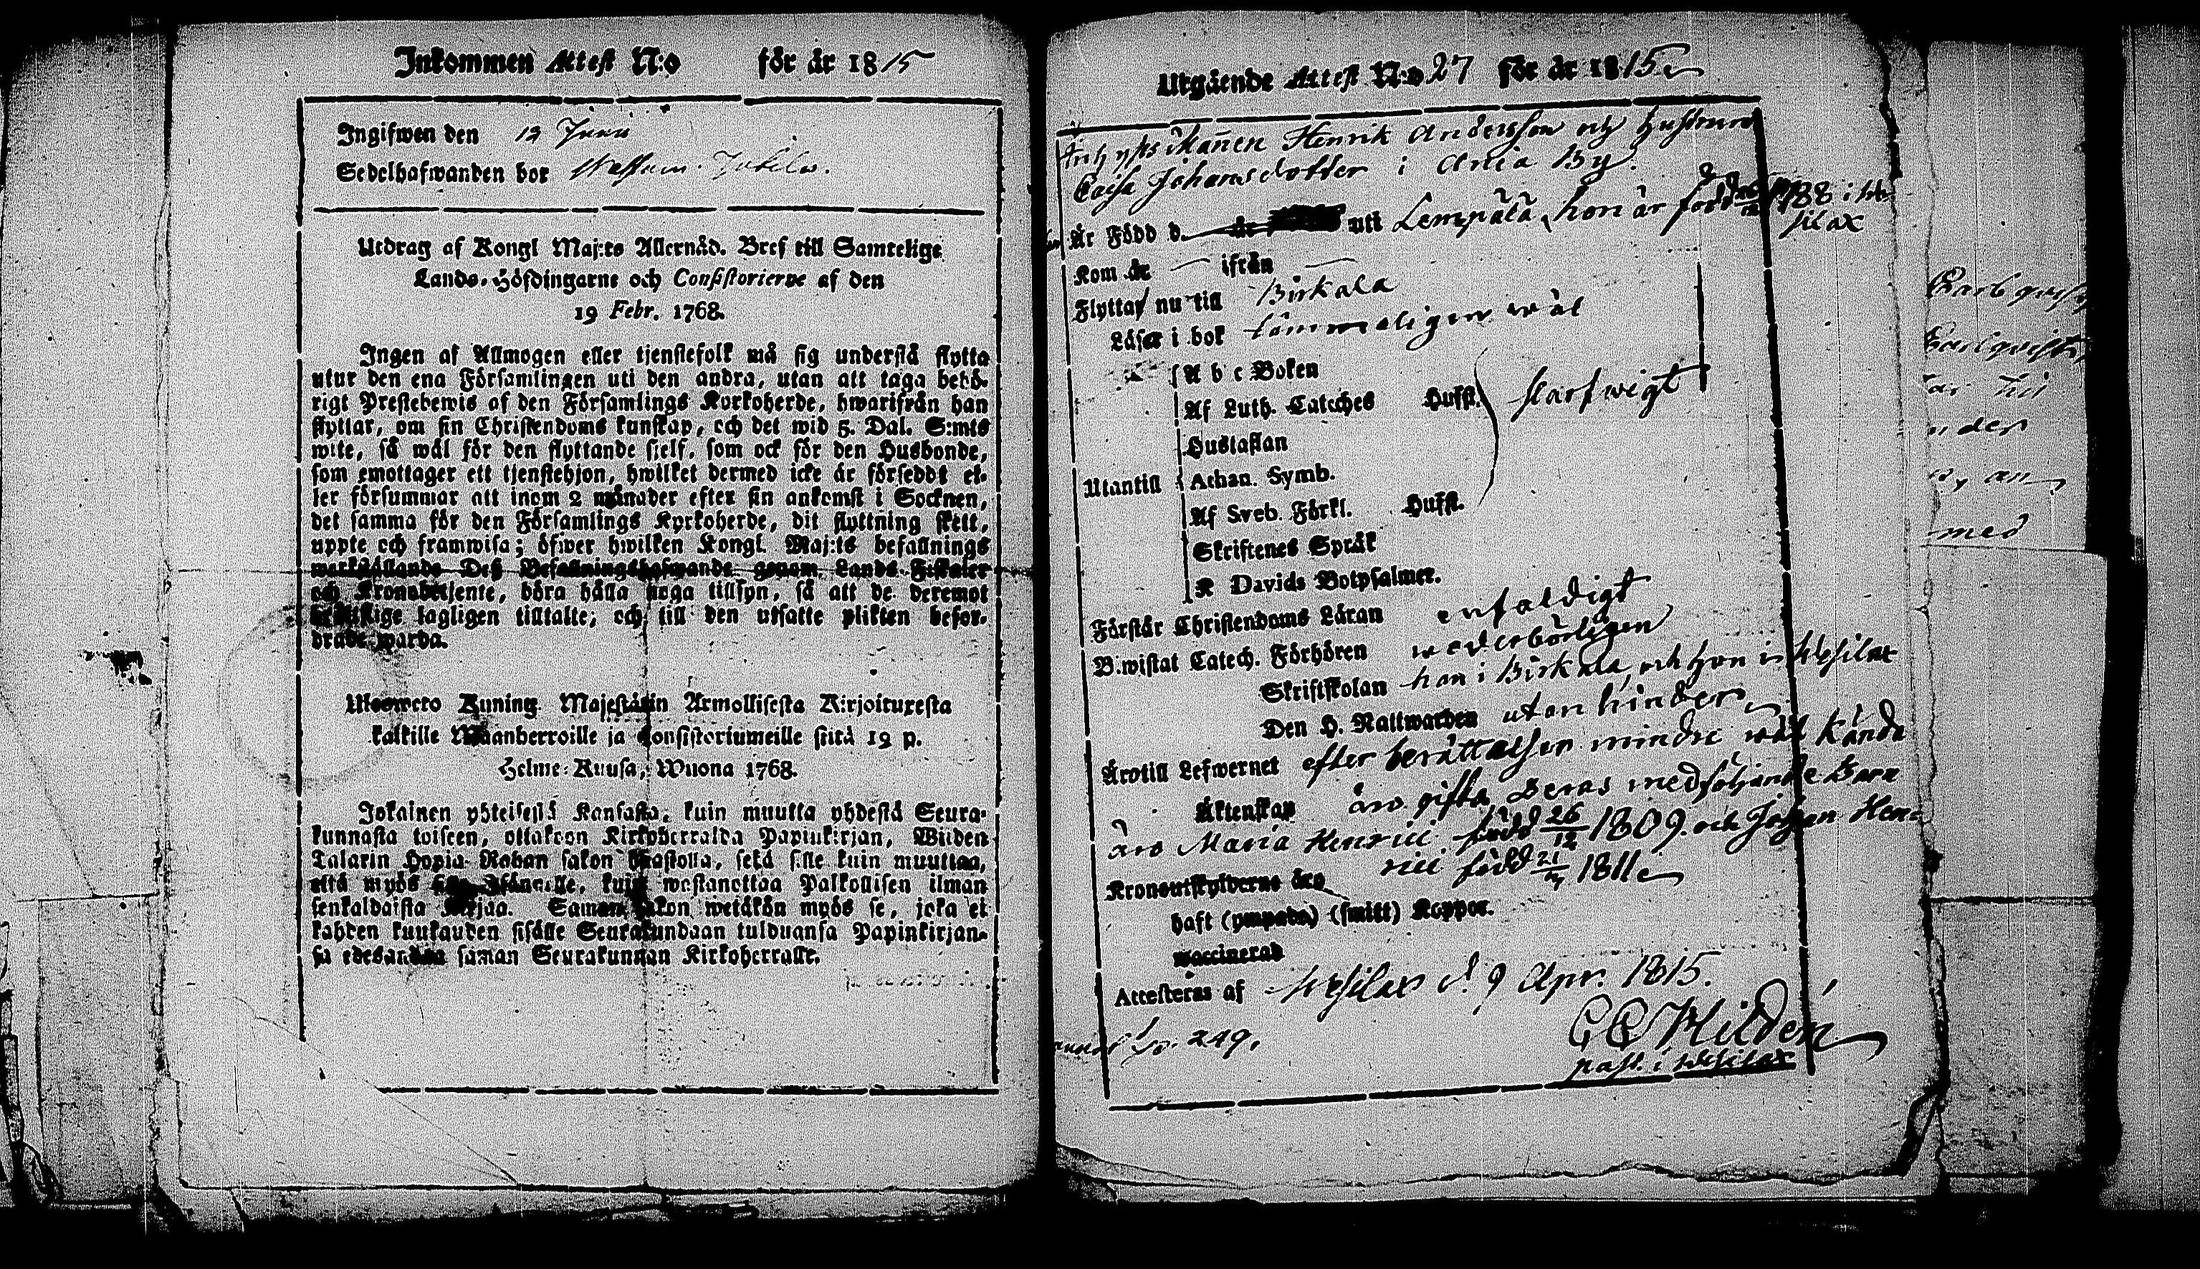 Inkommen Attest N:o för år 1815
Ingifwen den 13 Junii
Sedelhafwanden bor
Utdrag af Kongl Maj:ts Allernåd. Bref till Samtelige
Lands-Höfdingarne och Consistorierne af den
19 Febr. 1768.
Ingen af Allmogen eller tjenstefolk må sig understå flytta
utur den ena Församlingen uti den andra, utan att taga behö-
rigt Prestebewis af den Församlings Kyrkoherde, hwarifrån han
flyttar, om sin Christendoms kunskap, och det wid 5. Dal. S:mts
wite, så wäl för den flyttande sielf, som ock för den Husbonde,
som emottager ett tjenstehjon, hwilket dermed icke är försedt el-
ler försummar att inom 2 månader efter sin ankomst i Socknen,
det samma för den Församlings Kyrkoherde, dit flyttning skett,
uppte och framwisa; öfwer hwilken Kongl. Maj:ts befallnings
werkställande Deß Befallningshafwande genom Lands-Fiskaler
och Kronobetjente, böra hålla noga tillsyn, så att de deremot
lagligen tilltalte; och till den utsatte plikten befor-
drade warda.
Ulosweto Kuning. Majestätin Armollisesta Kirjoituxesta
kaikille Maanherroille ja Consistoriumeille siitä 19 p.
Helme-Kuusa, Wuona 1768.
Jokainen yhteisestä Kansasta, kuin muutta yhdestä Seura-
kunnasta toiseen, ottakoon Kirkoherralda Papinkirjan, Wiiden
Talarin Hopia-Rahan sakon haastolla, sekä sille kuin muuttaa,
että myös kuin wastanottaa Palkollisen ilman
senkaldaista kirjaa. Saman sakon wetäkön myös se, joka ei
kahden kuukauden sisälle Seurakundaan tulduansa Papinkirjan-
sa edesanna saman Seurakunnan Kirkoherralle.
Utgående Attest N:o 27 för år 1815
Mañen Henrik Andersson och hustrun
Caisa Johansdotter i Ania By.
Är Född d. år uti Lempälä, hon är född 1788 i We-
silax
Kom år ifrån
Flyttar nu till Birkala
Läser i bok tämmeligen wäl
A b c Boken
Af Luth. Cateches Hufst. skarfwigt
Hustaflan
Utantill Athan. Symb.
Af Sveb. Förkl. Hufst.
Skriftenes Språk
K Davids Botpsalmer.
Förstår Christendoms Läran enfaldigt
B:wistat Catech. Förhören wederbörligen
Skriftskolan han i Birkala och hon i Wesilax
Den H. Nattwarden utan hinder
Ärotill Lefwernet efter berättelsen mindre wäl kända
Äktenskap äro gifta Deras medföljande Barn
äro Maria Henrici född 26/12 1809. och Johan Hen-
rici född 21 1811
Kronoutskylderne äro
haft (ympade) (smitt) Koppor.
waccinerad
Attesteras af Wesilax d. 9 Apr. 1815.
C C Hildén
past. i Wesilax
249.
Carlqvist
med